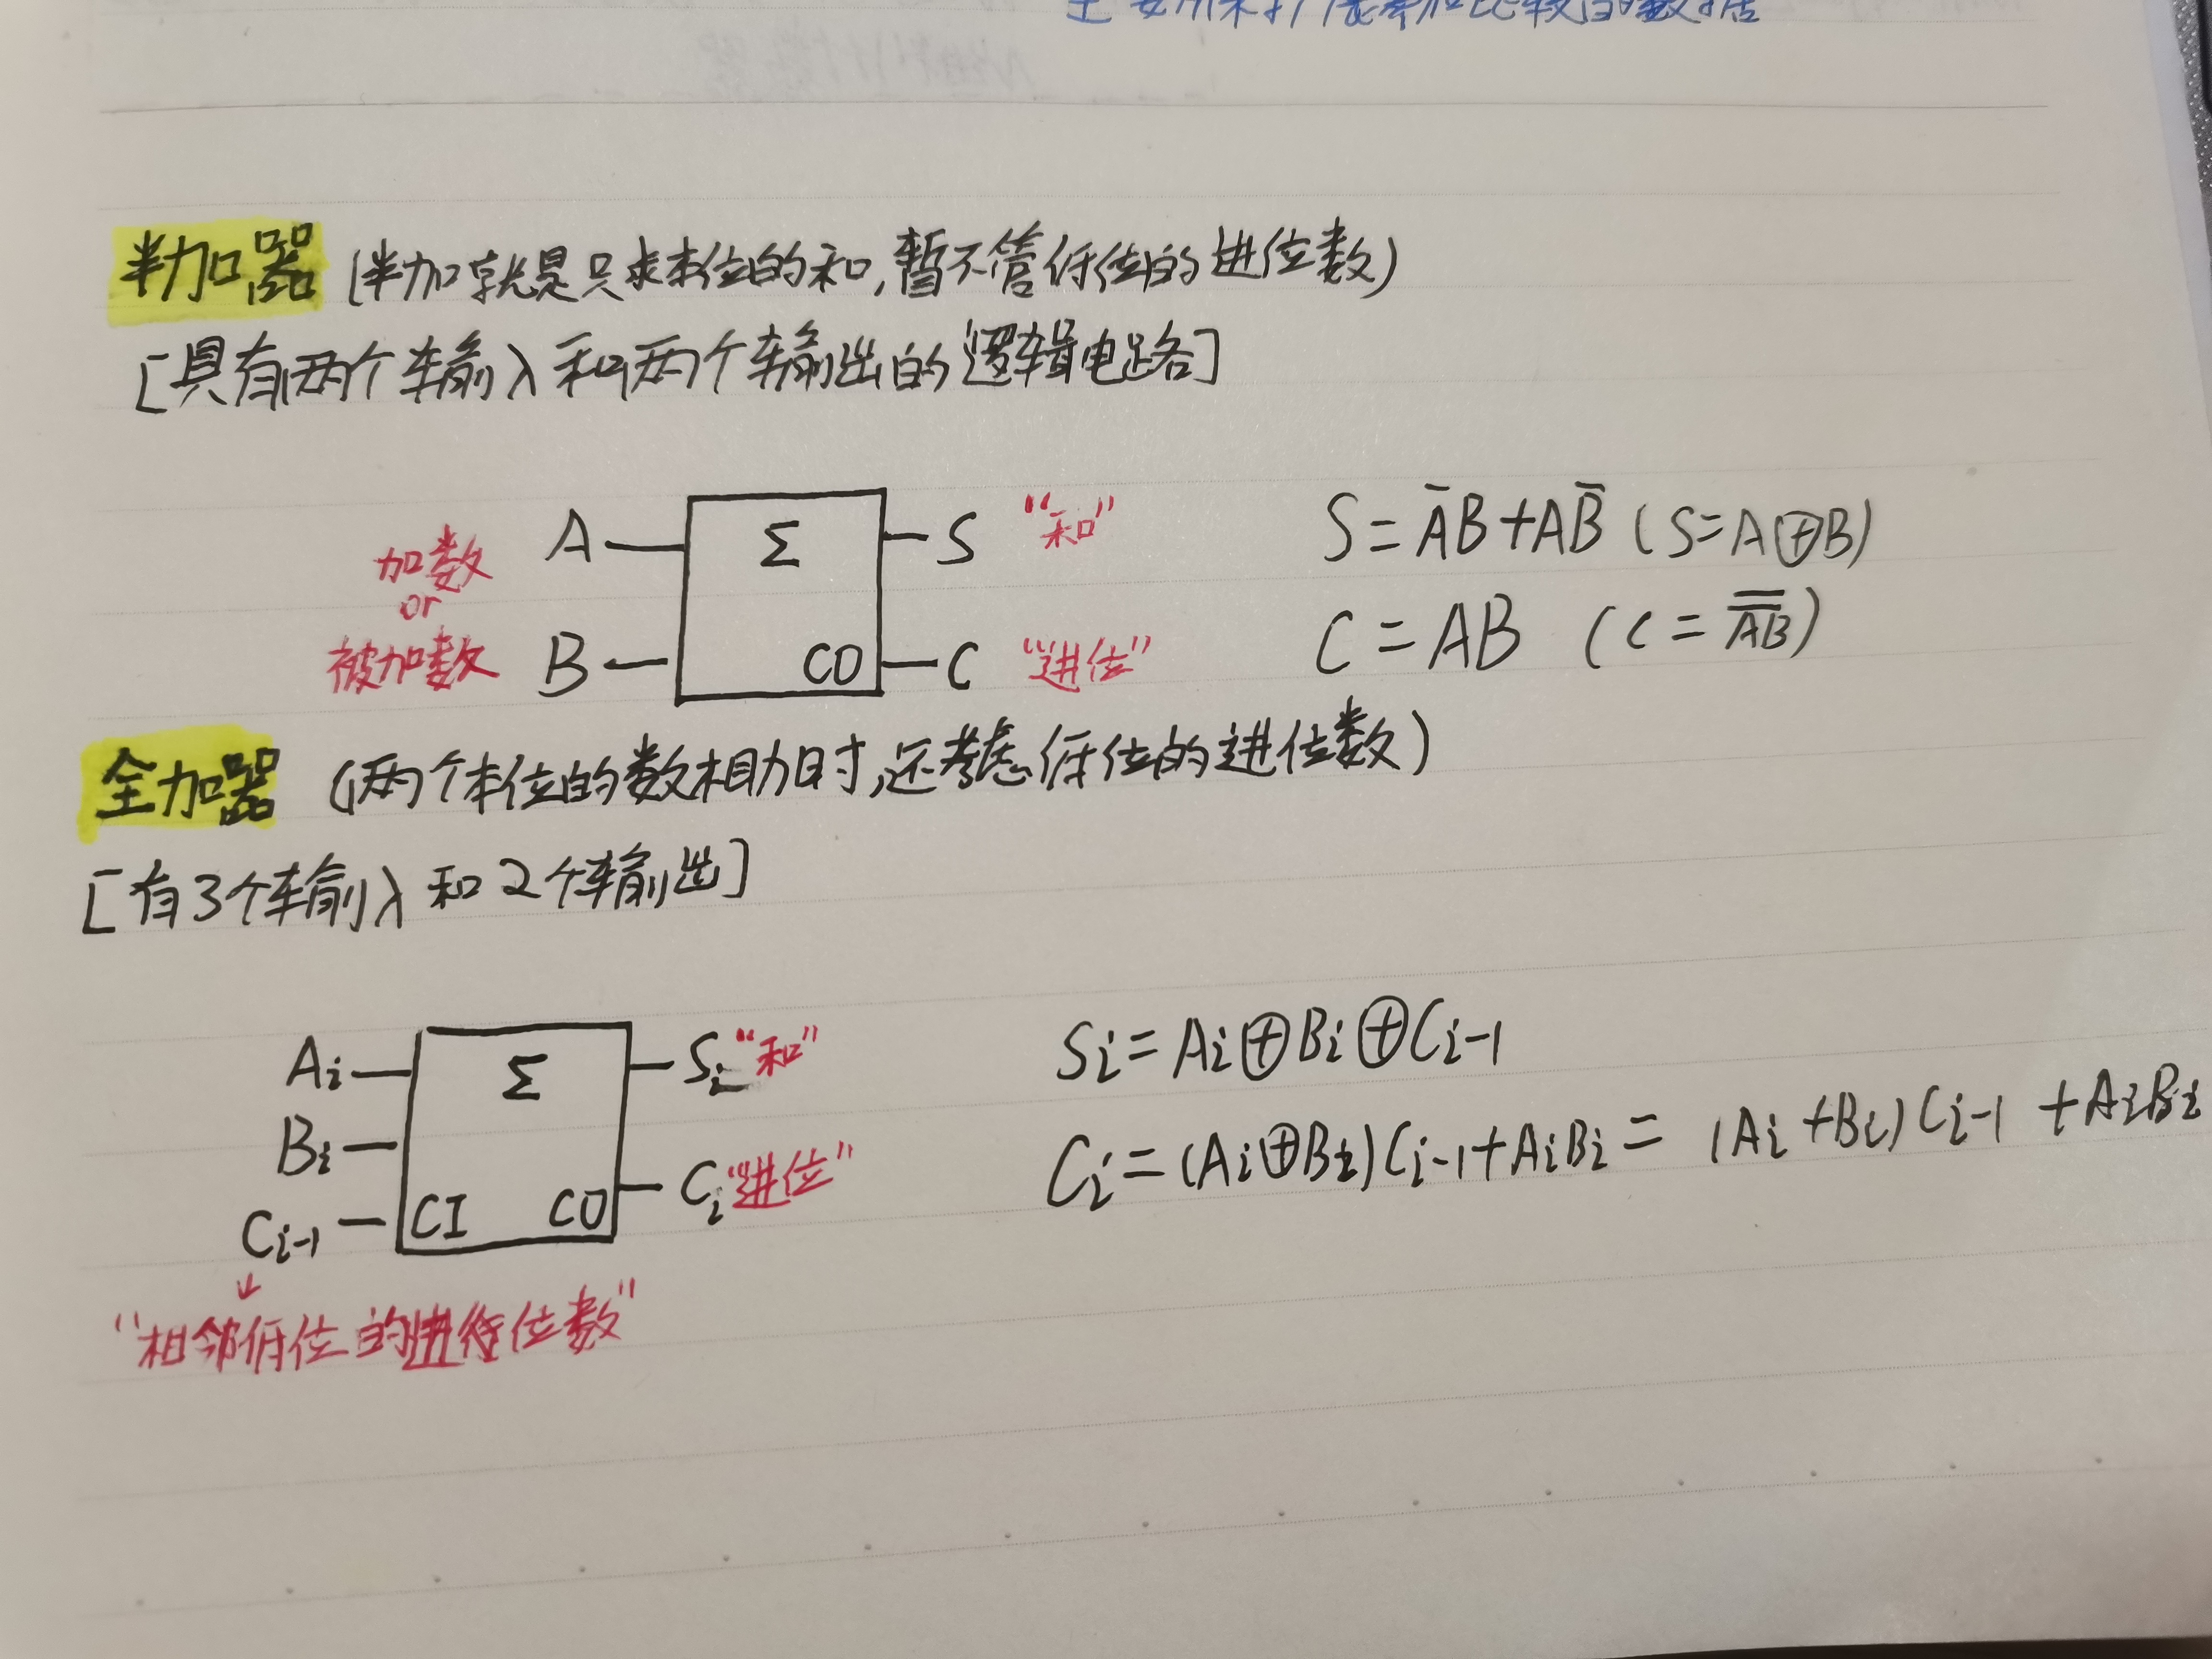 半加器 (半加就是只求本位的和,暂不管低位的进位数)
[具有两个输入和两个输出的逻辑电路]
加数
or
被加数
A
B
Σ
CO
S "和"
C "进位"
S = A̅B + AB̅ (S = A⊕B)
C = AB (C = A̿B̿)
全加器 (两个本位的数相加时,还考虑低位的进位数)
[有3个输入和2个输出]
Ai
Bi
Ci-1
Σ
CI CO
Si "和"
Ci "进位"
Si = Ai⊕Bi⊕Ci-1
Ci = (Ai⊕Bi)Ci-1 + AiBi = (Ai + Bi)Ci-1 + AiBi
"相邻低位的进位数"